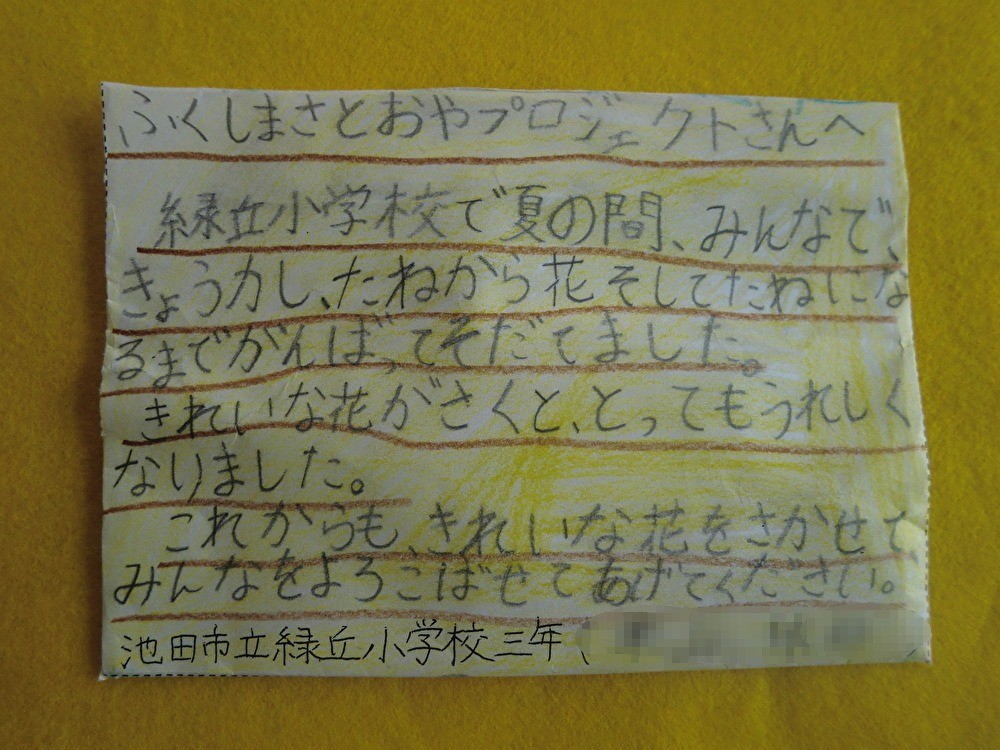 ふくしまさとおやプロジェクトさんへ
緑丘小学校で夏の間、みんなで、
きょう力し、たねから花そしてたねにな
るまでがんばってそだてました。
きれいな花がさくと、とってもうれしく
なりました。
これからも、きれいな花をさかせて、
みんなをよろこばせてあげてください。
池田市立緑丘小学校三年